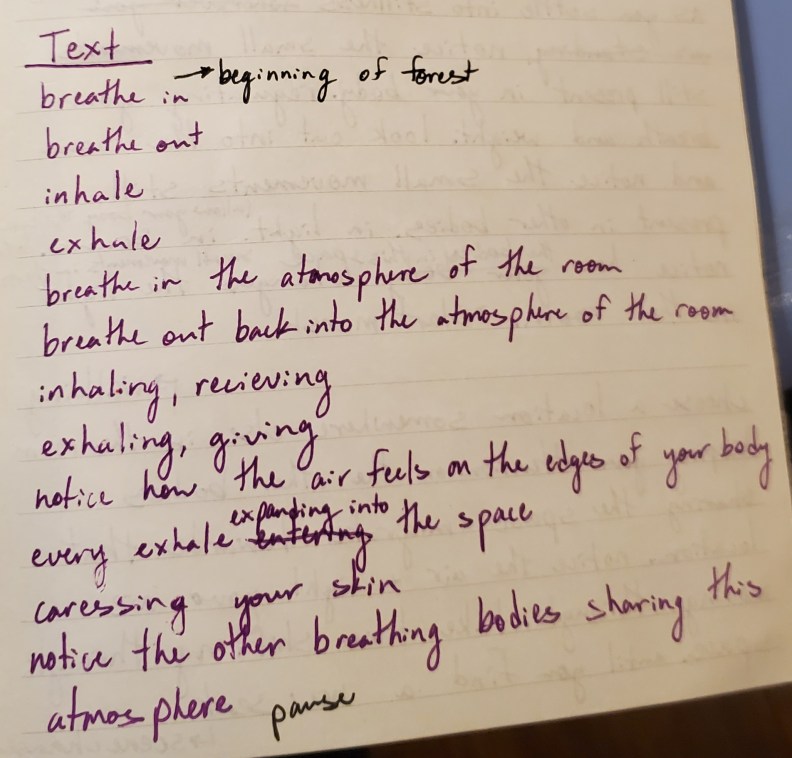 Text
breathe in → beginning of forest
breathe out
inhale
exhale
breathe in the atmosphere of the room
breathe out back into the atmosphere of the room
inhaling, recieving
exhaling, giving
notice how the air feels on the edges of your body
every exhale entering expanding into the space
caressing your skin
notice the other breathing bodies sharing this
atmosphere pause